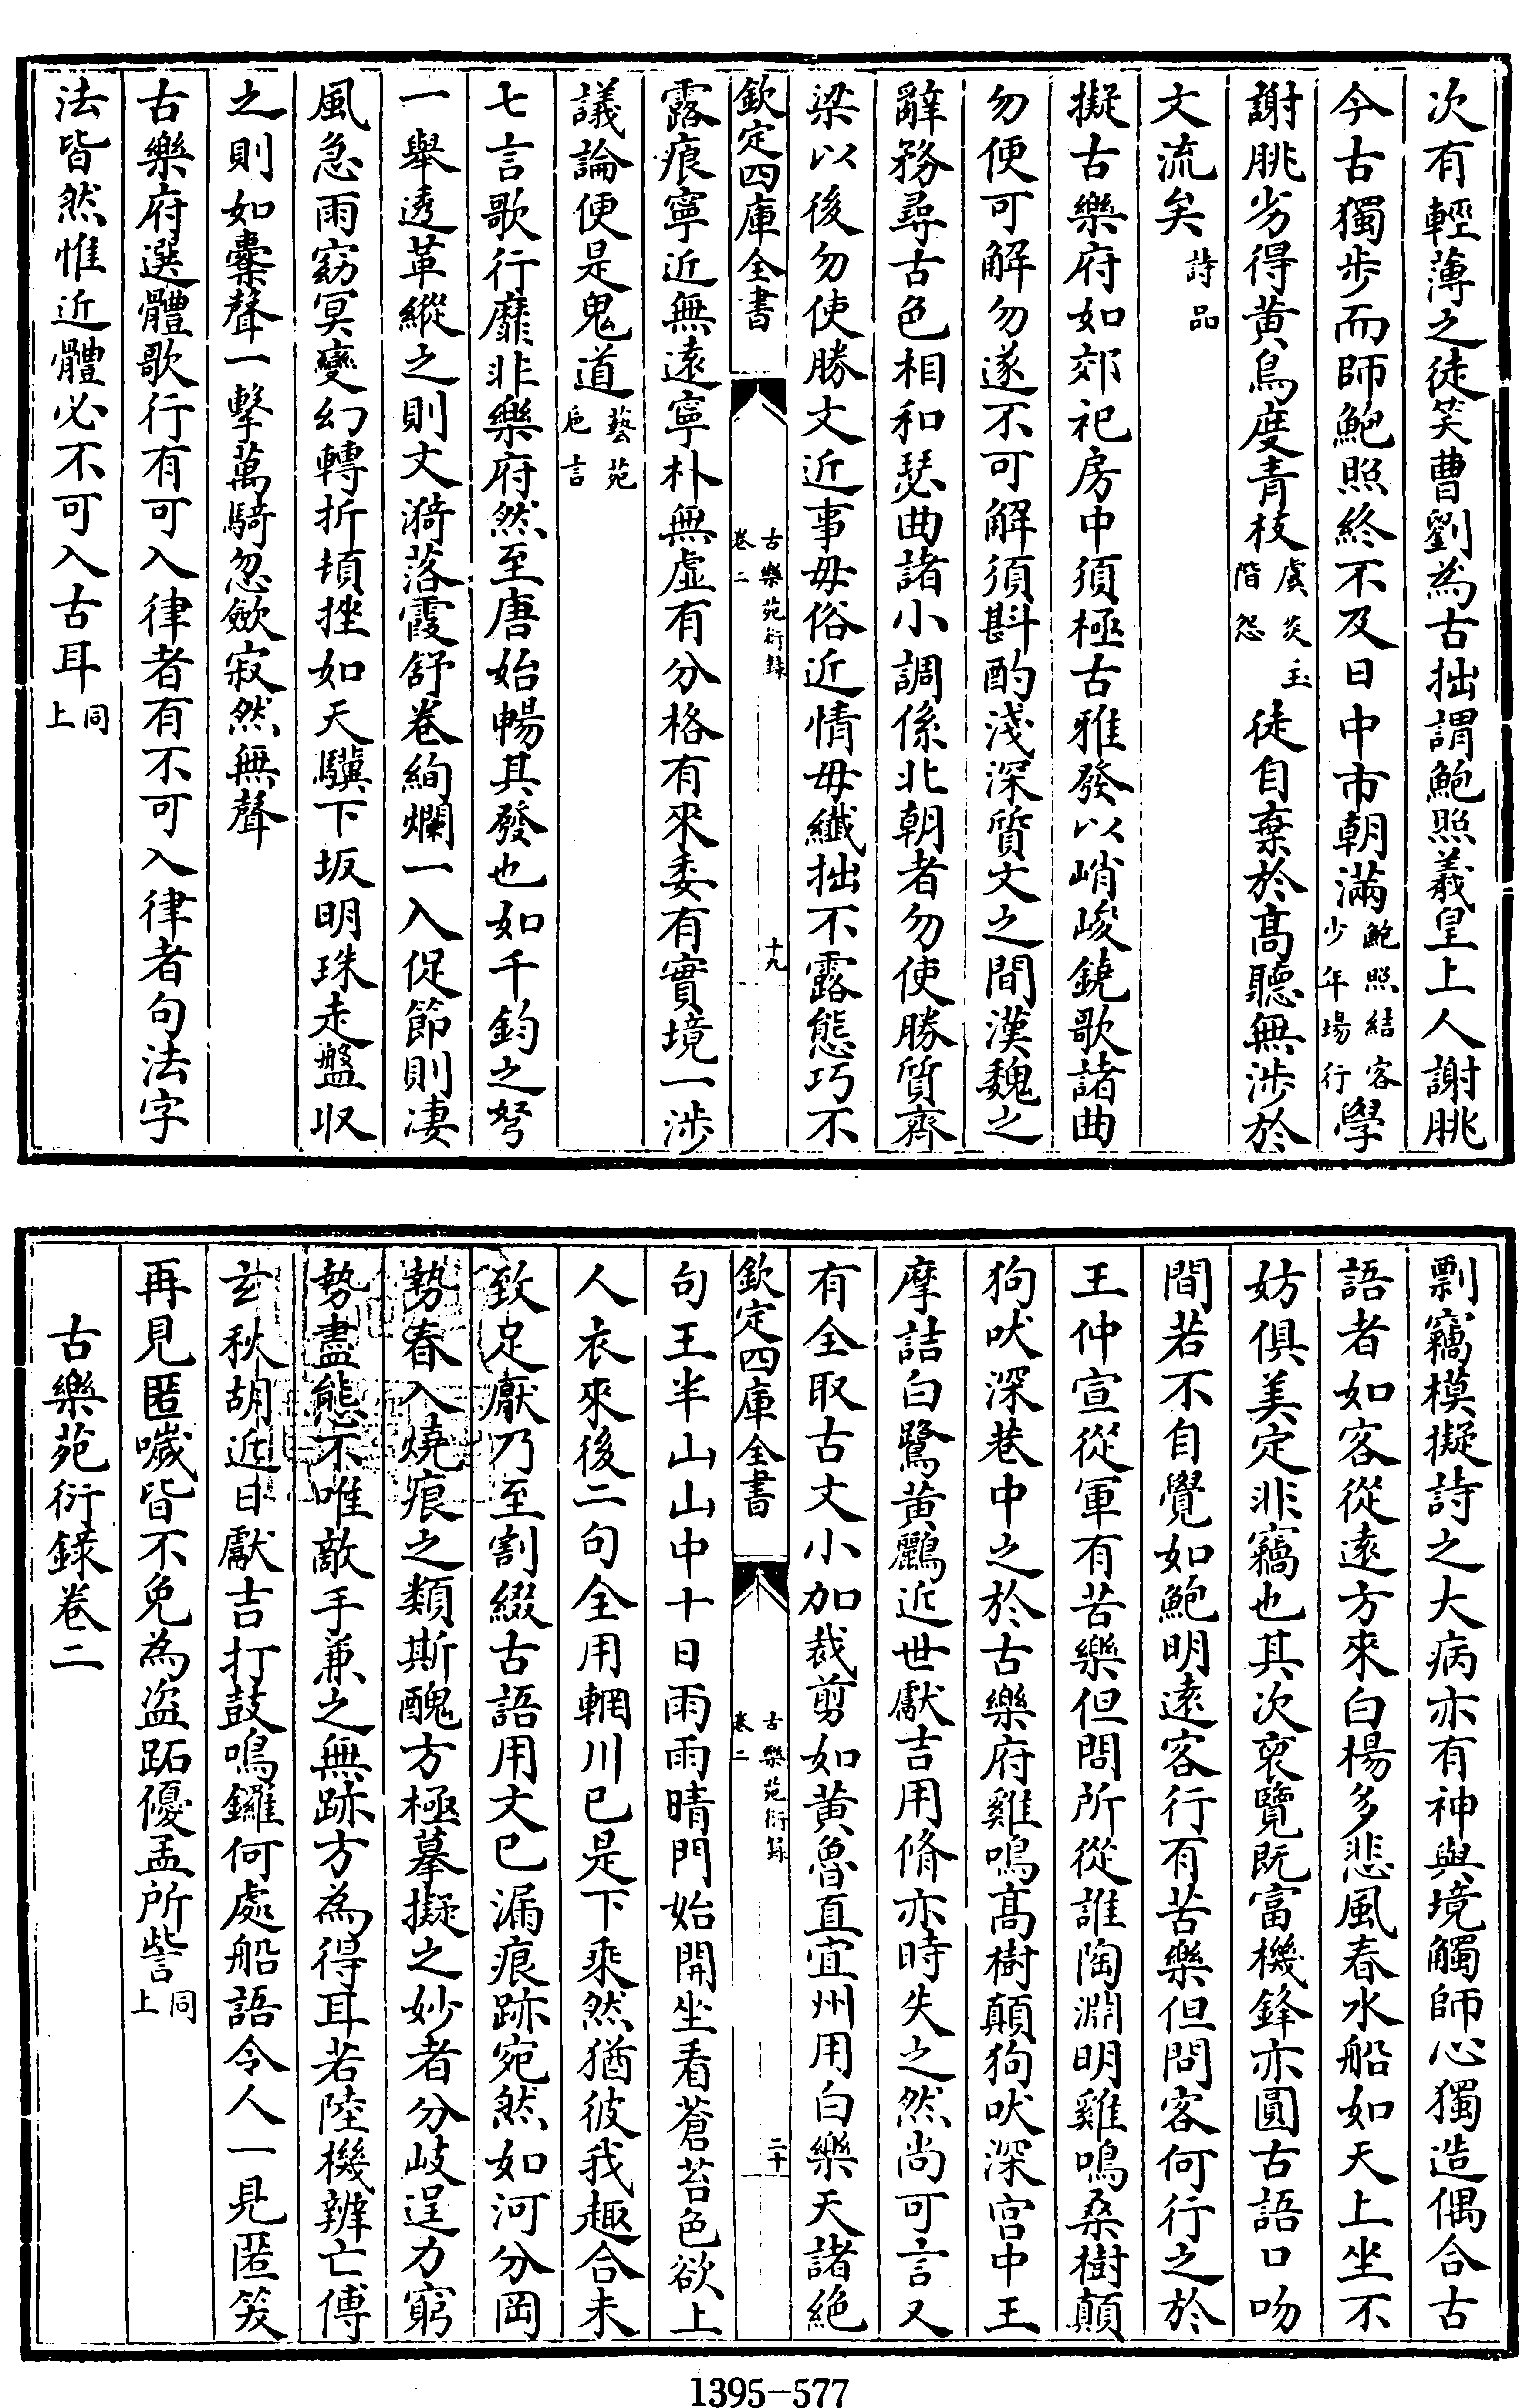 次有輕薄之徒笑曹劉為古拙謂鮑照羲皇上人謝朓
今古獨步而師鮑照終不及日中市朝滿鮑照結客少年場行學
謝朓劣得黄鳥度青枝虞炎玉階怨徒自棄於髙聽無渉於
文流矣詩品
擬古樂府如郊祀房中須極古雅發以峭峻鐃歌諸曲
勿便可解勿遂不可解須斟酌淺深質文之間漢魏之
辭務尋古色相和瑟曲諸小調係北朝者勿使勝質齊
梁以後勿使勝文近事毋俗近情毋纖拙不露態巧不
欽定四庫全書
古樂苑衍録
卷二
十九
露痕寧近無逺寧朴無虚有分格有來委有實境一渉
議論便是鬼道藝苑巵言
七言歌行靡非樂府然至唐始暢其發也如千鈞之弩
一舉透革縱之則文漪落霞舒巻絢爛一入促節則凄
風急雨窈冥變幻轉折頓挫如天驥下坂明珠走盤収
之則如櫜聲一擊萬騎忽歛寂然無聲
古樂府選體歌行有可入律者有不可入律者句法字
法皆然惟近體必不可入古耳同上
剽竊模擬詩之大病亦有神與境觸師心獨造偶合古
語者如客從逺方來白楊多悲風春水船如天上坐不
妨俱美定非竊也其次裒覽既富機鋒亦圓古語口吻
間若不自覺如鮑明逺客行有苦樂但問客何行之於
王仲宣從軍有苦樂但問所從誰陶淵明雞鳴桑樹顛
狗吠深巷中之於古樂府雞鳴髙樹顛狗吠深宫中王
摩詰白鷺黄鸝近世獻吉用脩亦時失之然尚可言又
有全取古文小加裁剪如黄魯直宜州用白樂天諸絶
欽定四庫全書
古樂苑衍録
卷二
二十
句王半山山中十日雨雨晴門始開坐看蒼苔色欲上
人衣來後二句全用輞川已是下乘然猶彼我趣合未
致足厭乃至割綴古語用文已漏痕跡宛然如河分岡
勢春入燒痕之類斯醜方極摹擬之妙者分岐逞力窮
勢盡態不唯敵手兼之無跡方為得耳若陸機辨亡傅
玄秋胡近日獻吉打鼓鳴鑼何處船語令人一見匿笑
再見匿嘔皆不免為盗跖優孟所訾同上
古樂苑衍録卷二
1395-577